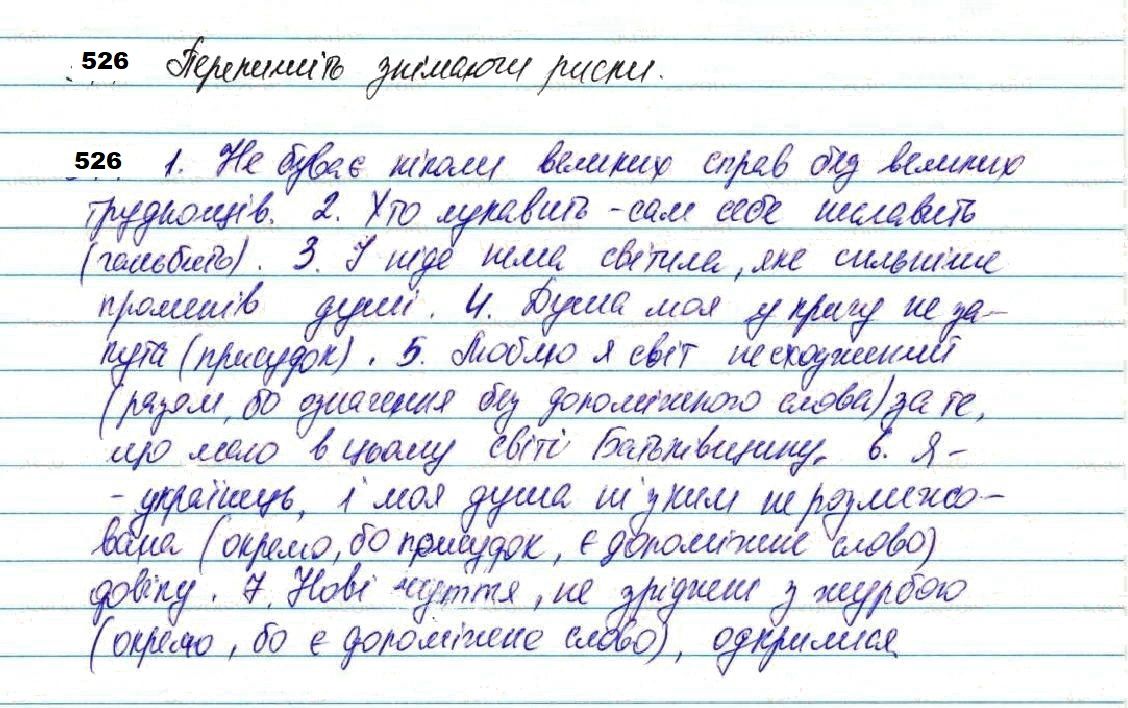 526 Перепишіть знімаючи риски.
526 1. Не буває ніколи великих справ без великих
труднощів. 2. Хто лукавить - сам себе неславить
(ганьбить). 3. І ніде нема світила, яке сильніше
променів душі. 4. Душа моя у крачу не за-
пута (присудок). 5. Люблю я світ несходжений
(разом, бо означення без допоміжного слова) за те,
що маю в цьому світі Батьківщину. 6. Я -
- українець, і моя душа ні з ким не розмежо-
вана (окремо, бо присудок, є допоміжне слово)
довіку. 7. Нові чуття, не зріднені з журбою
(окремо, бо є допоміжне слово), одкрилися